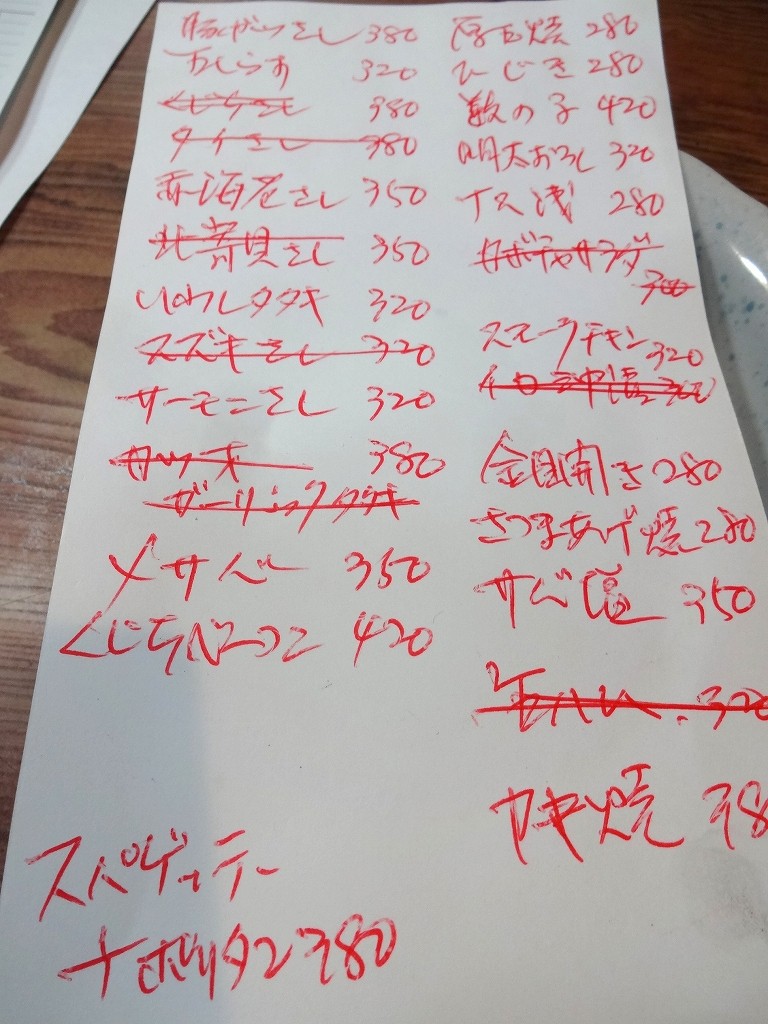 豚ガツさし 380
生しらす 320
くじらさし 380
タイさし 380
赤海老さし 350
北寄貝さし 350
いわしタタキ 320
スズキさし 320
サーモンさし 320
カツオ 380
ガーリックタタキ
〆サバ 350
くじらベーコン 420
スパゲッティー
ナポリタン 380
厚玉焼 280
ひじき 280
数の子 420
明太おろし 320
ナス浅 280
カボチャサラダ
300
スモークチキン 320
金目開き 280
さつまあげ焼 280
サバ塩 350
320
カキ焼 38